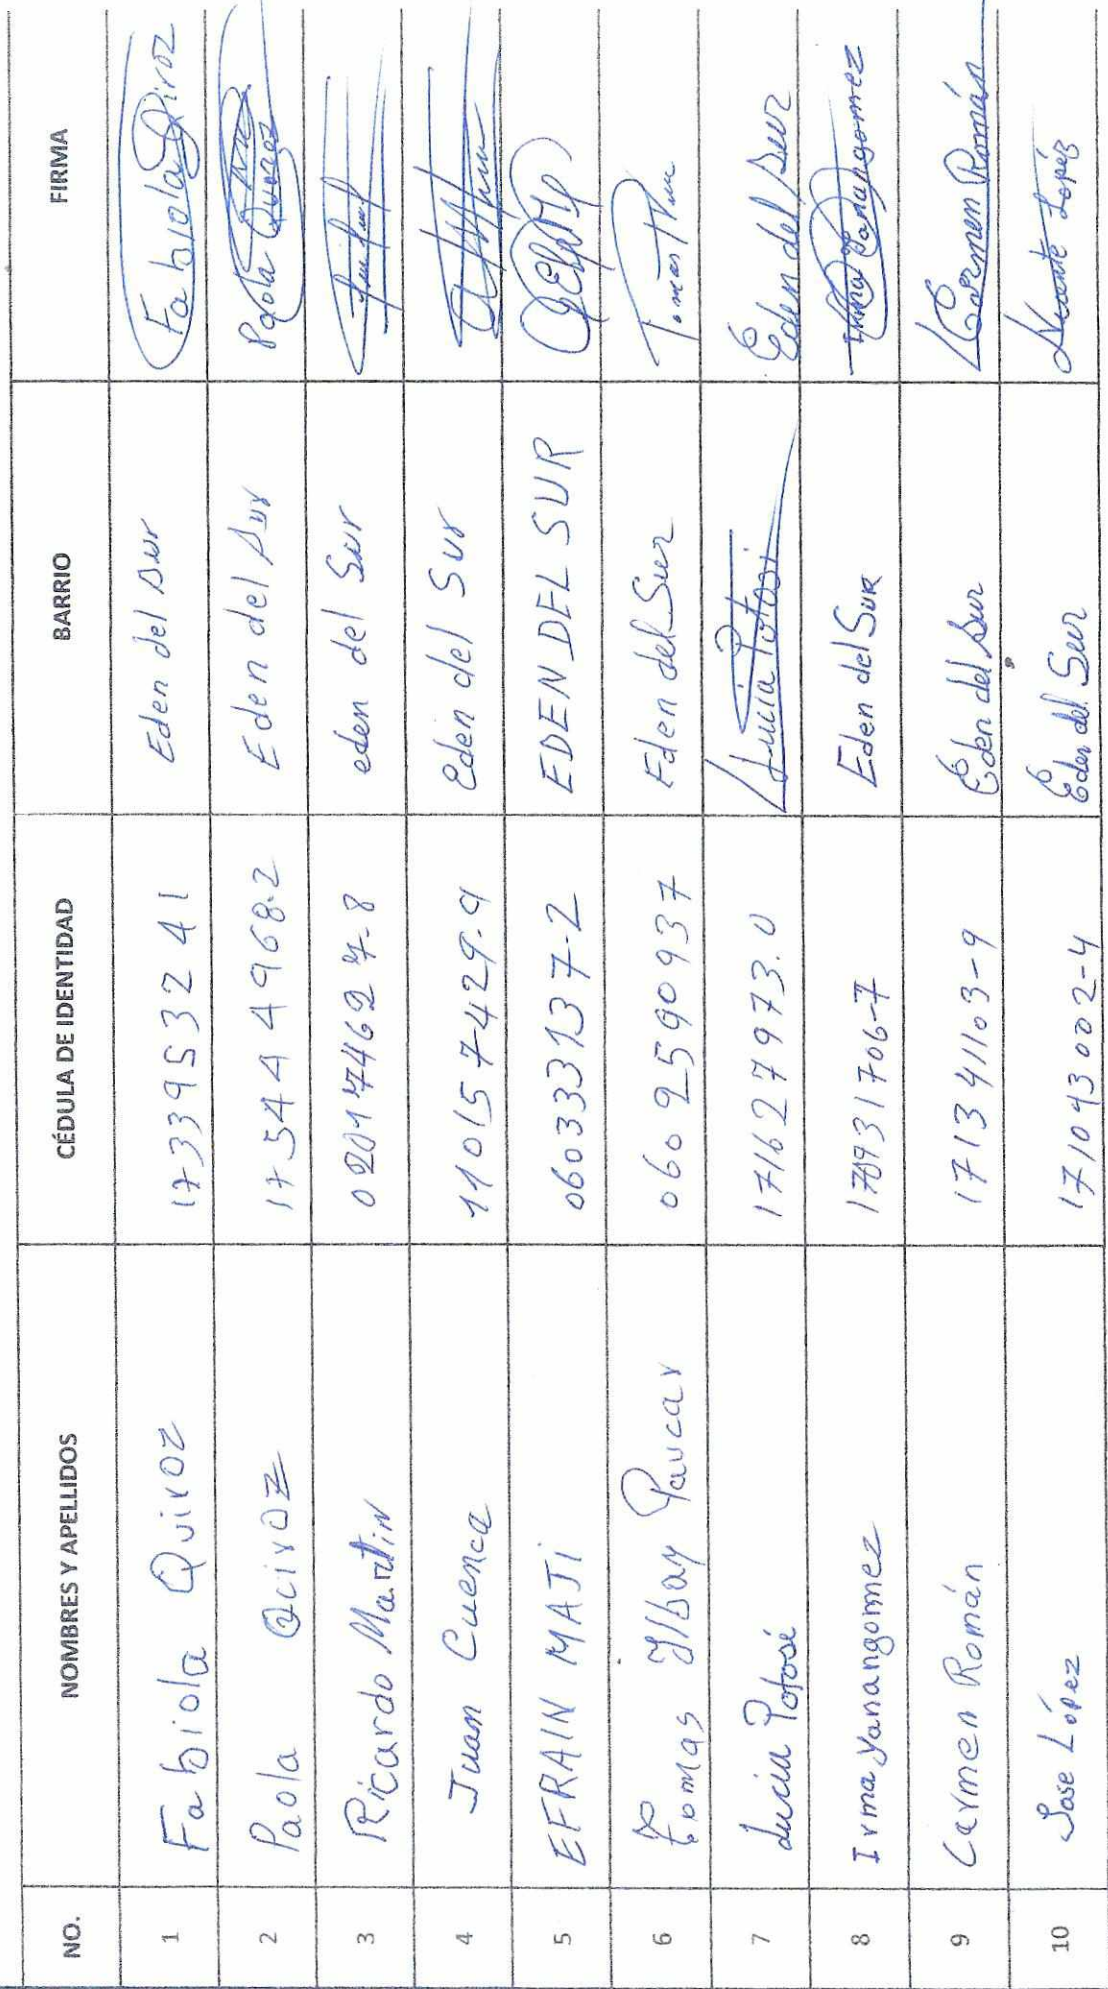 NO. NOMBRES Y APELLIDOS CÉDULA DE IDENTIDAD BARRIO FIRMA
1 Fabiola Quiroz 1733953241 Eden del sur Fabiola Qiroz
2 Paola Qciroz 175444968.2 Eden del sur Paola
3 Ricardo Martin 020174627-8 eden del Sur
4 Juan Cuenca 110157429-9 Eden del Sur
5 EFRAIN MAJI 060333137-2 EDEN DEL SUR
6 Tomas Ilbay Paucar 0602590937 Eden del Sur Tomas
7 Lucia Potosí 171627973.0 Lucia Potosi Eden del sur
8 Irma Yanangomez 170931706-7 Eden del SUR Irma Yanangomez
9 Carmen Román 171341103-9 Eden del Sur Carmen Román
10 Jose López 171043002-4 Eden del Sur López